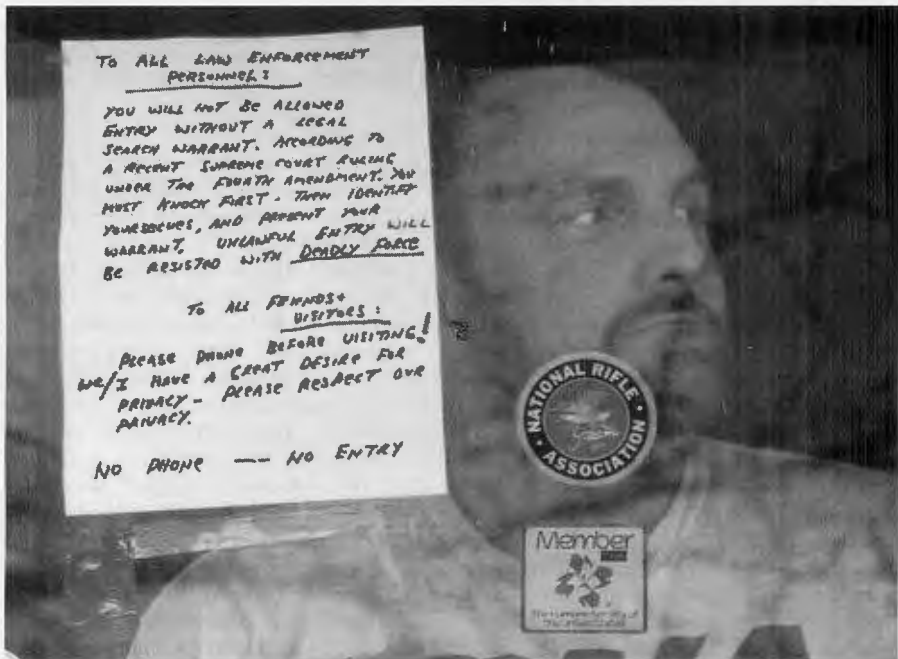 To ALL LAW ENFORCEMENT
PERSONNEL:
YOU WILL NOT BE ALLOWED
ENTRY WITHOUT A LEGAL
SEARCH WARRANT. ACCORDING TO
A RECENT SUPREME COURT RULING
UNDER THE FOURTH AMENDMENT. YOU
MUST KNOCK FIRST - THEN IDENTIFY
YOURSELVES, AND PRESENT YOUR
WARRANT. UNLAWFUL ENTRY WILL
BE RESISTED WITH DEADLY FORCE
To ALL FRIENDS+
VISITORS:
PLEASE PHONE BEFORE VISITING!
WE/I HAVE A GREAT DESIRE FOR
PRIVACY - PLEASE RESPECT OUR
PRIVACY.
NO PHONE — NO ENTRY
NATIONAL RIFLE
ASSOCIATION
Member
The Humane Society of
the United States